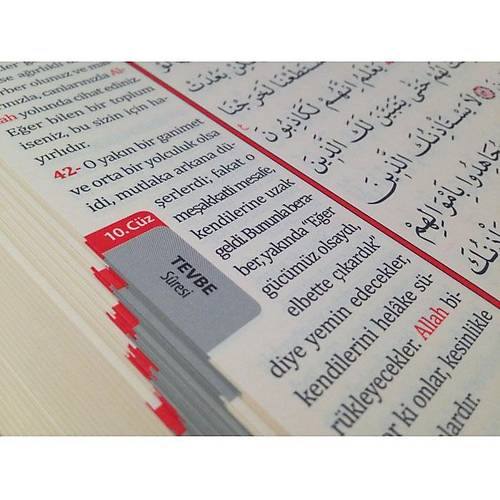 se ağırlıklı
rber olunuz ve ma
rınızla, canlarınızla Al-
ah yolunda cihat ediniz.
Eğer bilen bir toplum
iseniz, bu sizin için ha-
yırlıdır.
42- O yakın bir ganimet
ve orta bir yolculuk olsa
idi, mutlaka arkana dü-
şerlerdi; fakat o
meşakkatli mesafe,
kendilerine uzak
geldi. Bununla bera-
ber, yakında "Eğer
gücümüz olsaydı,
elbette çıkardık"
diye yemin edecekler,
kendilerini helâke sü-
rükleyecekler. Allah bi-
or ki onlar, kesinlikle
lardır.
10. Cüz
TEVBE
Sûresi
لَخَرَجْنَا
يَعْلَمُ إِنَّهُمْ لَكَاذِبُونَ
لَهُمْ حَتَّى يَتَبَيَّنَ لَكَ الَّذِينَ
لَا يَسْتَأْذِنُكَ الَّذِينَ
بِأَمْوَالِهِمْ